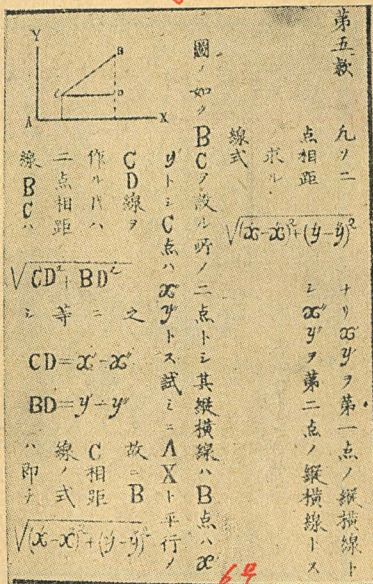 第五款
凡ソ二
点相距
求ル
線式
√(x'-x'')²+(y'-y'')²
ナリx'y'ヲ第一点ノ縦横線ト
シx''y''ヲ第二点ノ縦横線トス
圖ノ如クBCノ設ル所ノ二点トシ其縦横線ハB点ハx'
y'トシC点ハx''y''トス試ミニAXト平行ノ
CD線ヲ
作ル片ハ
二点相距
線BCハ
√CD²+BD²
之
ニ
等
シ
CD=x'-x''
BD=y'-y''
故ニB
C相距
線ノ式
ハ即チ
√(x'-x'')²+(y'-y'')²
Y
B
C
D
A
X